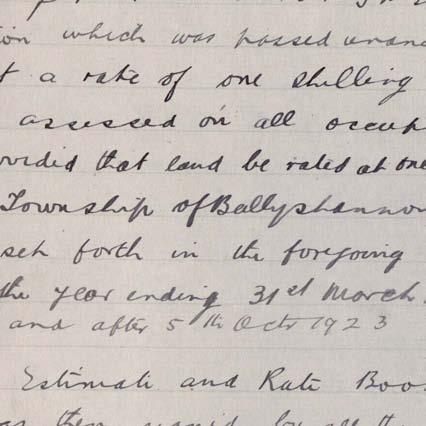 ion which was passed unan
t a rate of one shilling
assessed on all occup
ovided that land be rated at one
Township of Ballyshannon
set forth in the foregoing
the year ending 31st March
and after 5th Octr 1923
Estimate and Rate Boo
then signed by all the